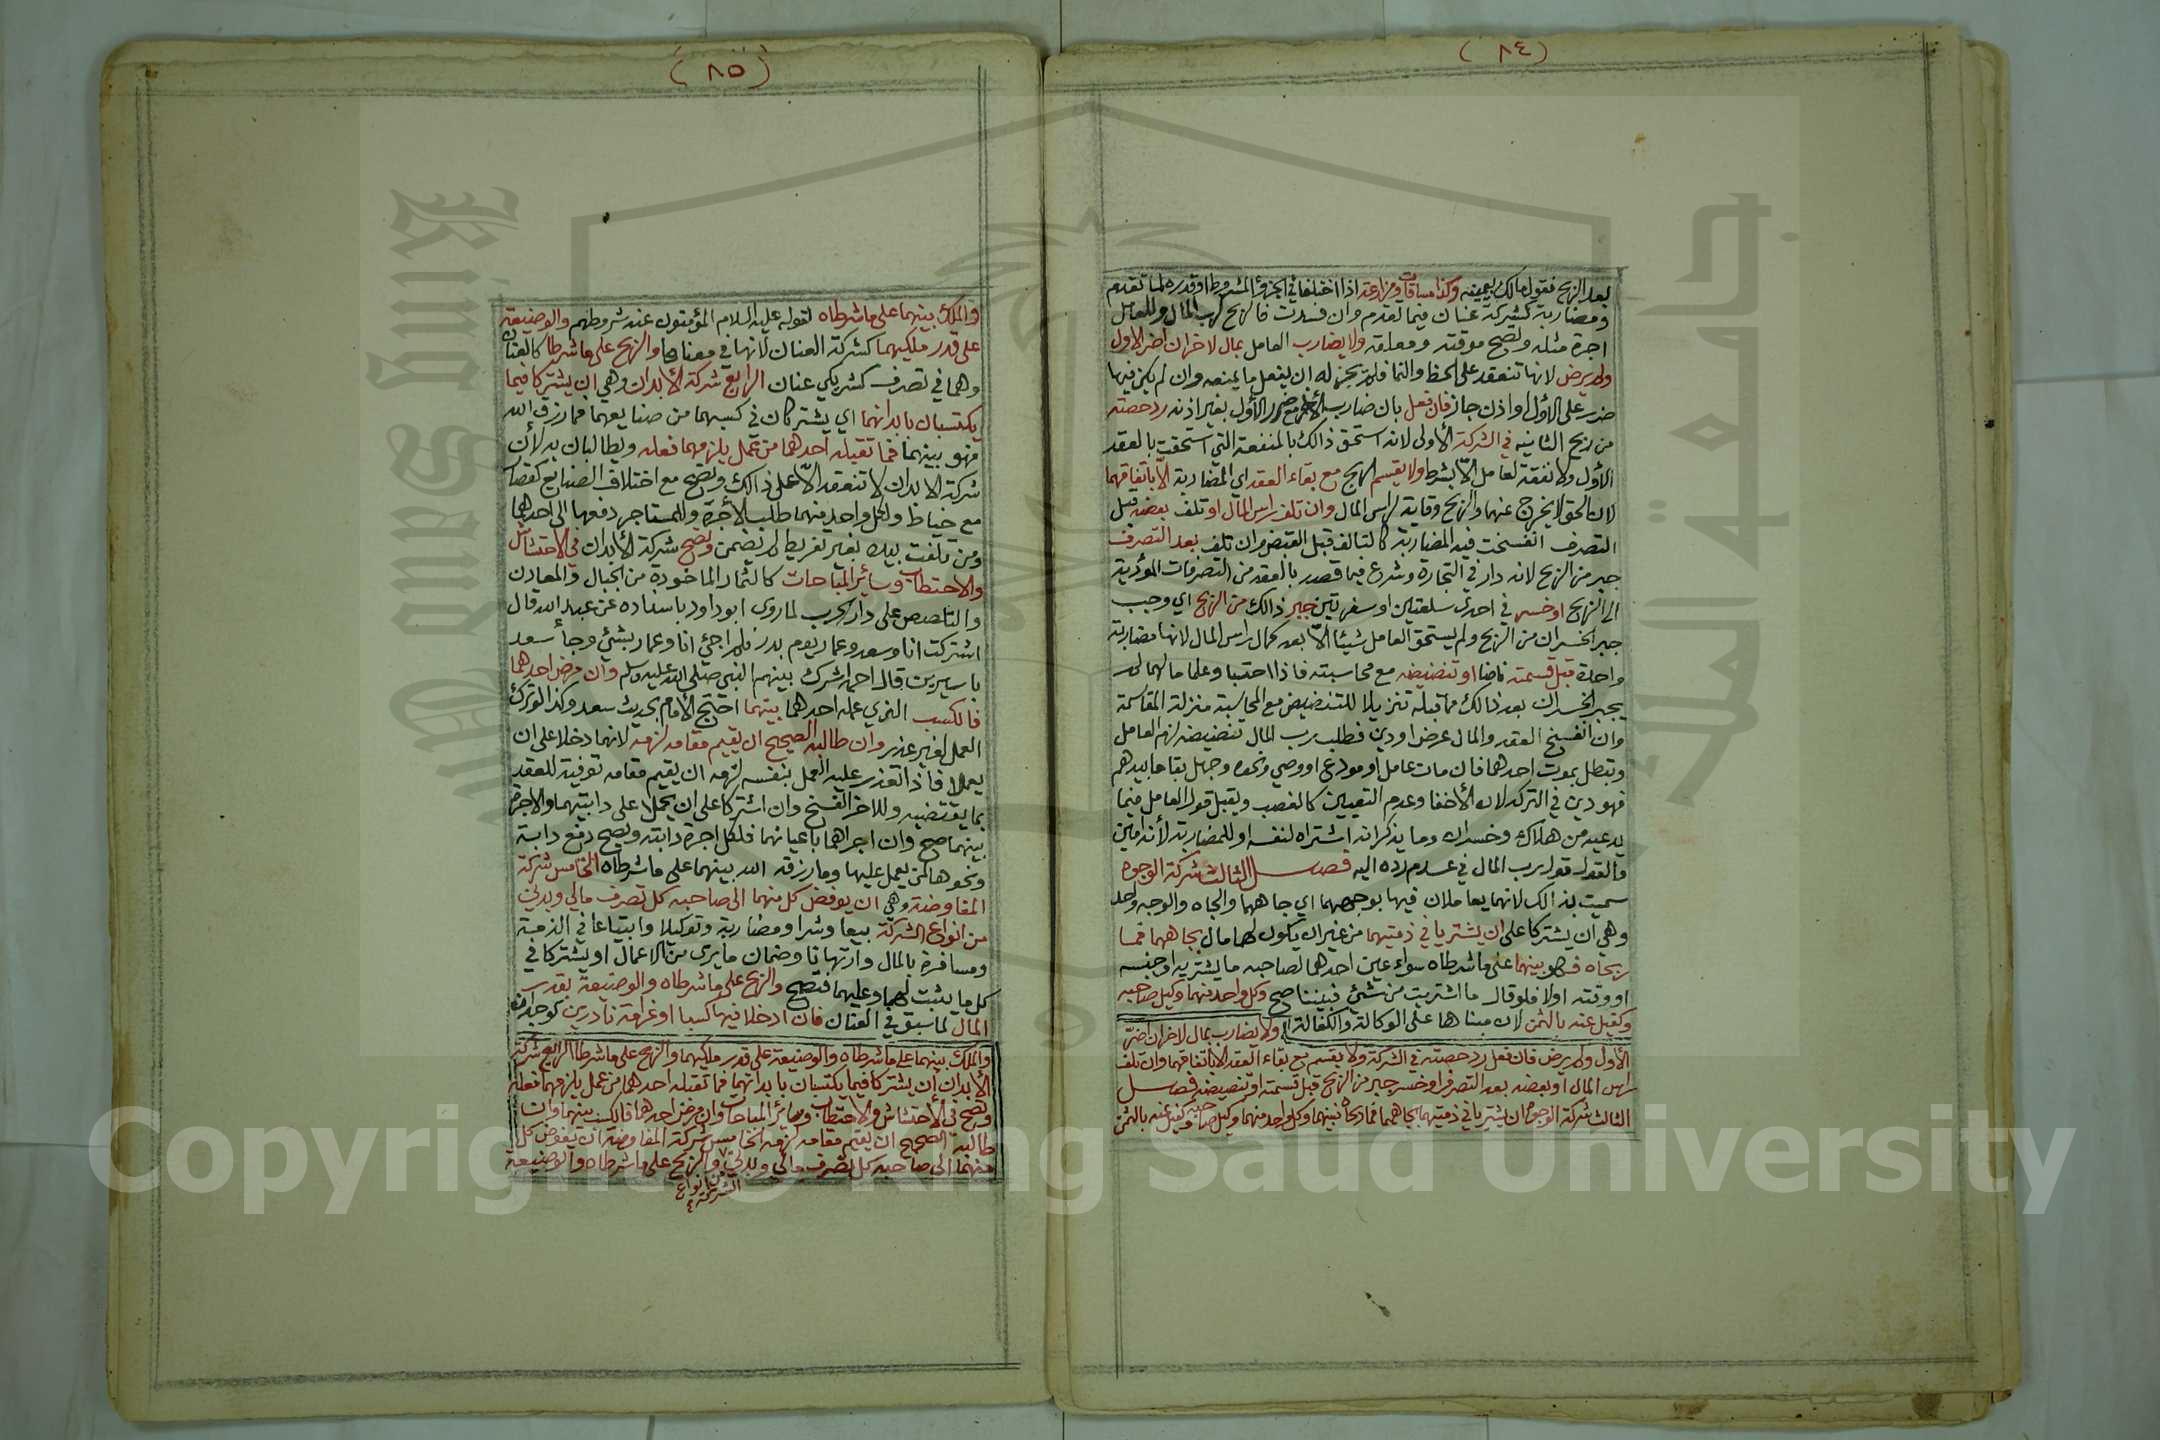 (٨٤)
بعد الربح فقول مالك بيمينه وكذا مساقات ومزارعة اذا اختلفا في الجزؤ المشروط او قدره لما تقدم
ومضاربة كشركة عنان فيما تقدم وان فسدت فالربح لرب المال وللعامل
اجرة مثله وتصح موقتة ومعلقة ولا يضارب العامل بمال لاخر ان اضر الاول
ولم يرض لانها تنعقد على الحظ والنما فلم يجز له ان يفعل ما يمنعه وان لم يكن فيها
ضرر على الاول او اذن جاز فان فعل بان ضارب لأخر مع ضرر الأول بغير اذنه رد حصته
من ربح الثانيه في الشركة الأولى لانه استحق ذالك بالمنفعة التي استحقت بالعقد
الأول ولا نفقة لعامل الّا بشرط ولا يقسم الربح مع بقاء العقد اي المضاربة الّا باتفاقهما
لان الحق لا يخرج عنهما والربح وقاية لراس المال وان تلف راس المال او تلف بعضه قبل
التصرف انفسخت فيه المضاربة كالتالف قبل القبض وان تلف بعد التصرف
جبر من الربح لانه دار في التجارة وشرع فيما قصد بالعقد من التصرفات المؤدية
الى الربح او خسر في احدى سلعتين او سفرتين جبر ذالك من الربح اي وجب
جبر الخسران من الربح ولم يستحق العامل شيئا الّا بعد كمال راس المال لانها مضاربة
واحدة قبل قسمته ناضا او تنضيضه مع محاسبته فاذا احتسبا وعلما ما لهما لم
يجبر الخسران بعد ذالك مما قبله تنزيلا للتنضيض مع المحاسبة منزلة المقاسمة
وان انفسخ العقد والمال عرض او دين فطلب رب المال تنضيضه لزم العامل
وتبطل بموت احدهما فان مات عامل او مودع او وصي ونحوه وجهل بقا ما بيدهم
فهو دين في التركه لان الأخفا وعدم التعيين كالغصب ويقبل قول العامل فيما
يدعيه من هلاك وخسران وما يذكر انه اشتراه لنفسه او للمضاربة لأنه امين
والقول قول رب المال في عدم رده اليه فصل الثالث شركة الوجوه
سميت بذالك لانهما يعاملان فيها بوجههما اي جاههما والجاه والوجه واحد
وهي ان يشتركا على ان يشتريا في ذمتيهما من غير ان يكون لهما مال بجاههما فما
ربحاه فهو بينهما على ما شرطاه سواء عين احدهما لصاحبه ما يشتريه او جنسه
او وقته اولا فلو قال ما اشتريت من شئي فبيننا صح وكل واحد منهما وكيل صاحبه
وكفيل عنه بالثمن لان مبناها على الوكالة والكفالة ولا يضارب بمال لاخر ان اضر
الأول ولم يرض فان فعل رد حصته في الشركة ولا يقسم مع بقاء العقد الا باتفاقهما وان تلف
راس المال او بعضه بعد التصرف او خسر جبر من الربح قبل قسمته او تنضيضه فصل
الثالث شركة الوجوه ان يشتريا في ذمتيهما بجاههما فما ربحاه فبينهما وكل واحد منهما وكيل صاحبه وكفيل عنه بالثمن
(٨٥)
والملك بينهما على ما شرطاه لقوله عليه السلام المؤمنون عند شروطهم والوضيعة
على قدر ملكيهما كشركة العنان لانها في معناها والربح على ما شرطا كالعنان
وهما في تصرف كشريكي عنان الرابع شركة الأبدان وهي ان يشتركا فيما
يكتسبان بابدانهما اي يشتركان في كسبهما من صنايعهما فما رزق الله
فهو بينهما فما تقبله احدهما من عمل يلزمهما فعله ويطالبان به لأن
شركة الابدان لا تنعقد الّا على ذالك وتصح مع اختلاف الصنايع كقصار
مع خياط ولكل واحد منهما طلب الأجرة وللمستاجر دفعها الى احدهما
ومن تلفت بيده بغير تفريط لم يضمن وتصح شركة الأبدان في الاحتشاش
والاحتطاب وسائر المباحات كالثمار الماخوذة من الجبال والمعادن
والتلصص على دار الحرب لما روى ابوداود باسناده عن عبد الله قال
اشتركت انا وسعد وعمار يوم بدر فلم اجئ انا وعمار بشئي وجأ سعد
باسيرين قال احمد اشرك بينهم النبي صلى الله عليه وسلم وان مرض احدهما
فالكسب الذي عمله احدهما بينهما احتج الأمام بحديث سعد وكذا لو ترك
العمل لغير عذر وان طالبه الصحيح ان يقيم مقامه لزمه لانهما دخلا على ان
يعملا فاذا تعذر عليه العمل بنفسه لزمه ان يقيم مقامه توفية للعقد
بما يقتضيه وللاخر الفسخ وان اشتركا على ان يحملا على دابتيهما والاجرة
بينهما صح وان اجراهما باعيانهما فلكل اجرة دابته ويصح دفع دابة
ونحوها لمن يعمل عليها وما رزقه الله بينهما على ما شرطاه الخامس شركة
المفاوضة وهي ان يفوض كل منهما الى صاحبه كل تصرف مالي وبدني
من انواع الشركة بيعا وشرا ومضاربة وتوكيلا وابتياعا في الذمة
ومسافرة بالمال وارتهانا وضمان ما يرى من الاعمال او يشتركا في
كل ما يثبت لهما وعليهما فتصح والربح على ما شرطاه والوضيعة بقدر
المال لما سبق في العنان فان ادخلا فيها كسبا او غرامة نادرين كوجدان
والملك بينهما على ما شرطاه والوضيعة على قدر ملكيهما والربح على ما شرطا الرابع شركة
الأبدان ان يشتركا فيما يكتسبان بابدانهما فما تقبله احدهما من عمل يلزمهما فعله
وتصح في الاحتشاش والاحتطاب وسائر المباحات وان مرض احدهما فالكسب بينهما وان
طالبه الصحيح ان يقيم مقامه لزمه الخامس شركة المفاوضة ان يفوض كل
منهما الى صاحبه كل تصرف مالي وبدني والربح على ما شرطاه والوضيعة
من انواع
الشركة
Copyright © King Saud University
جامعة الملك سعود
King Saud University